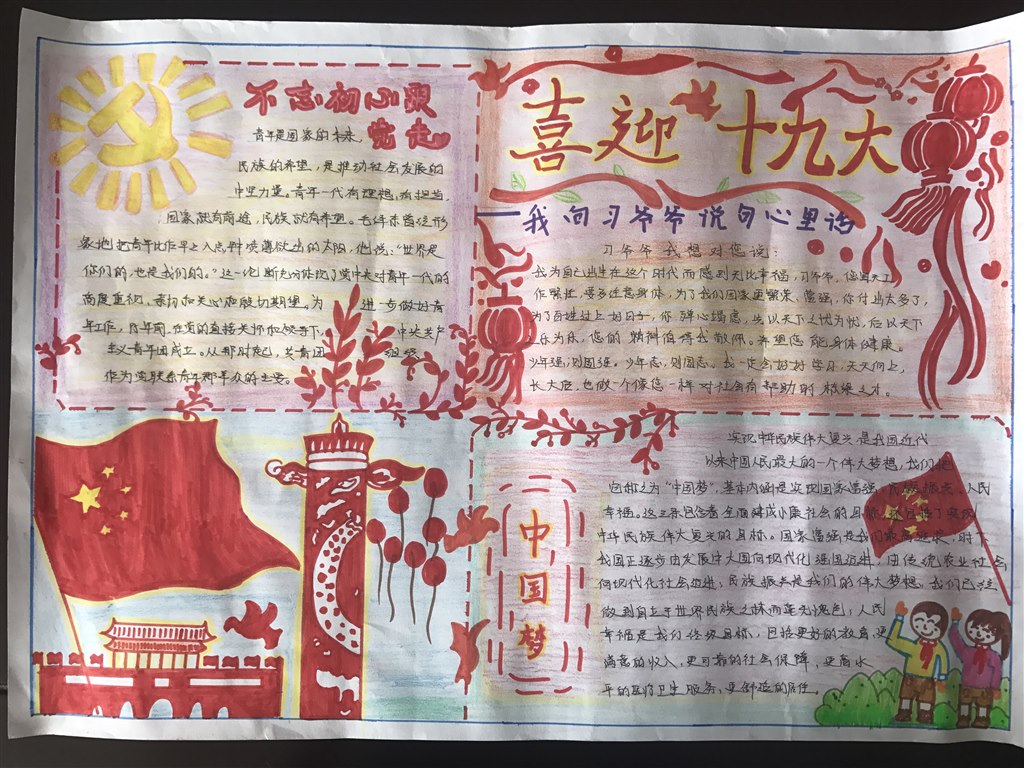 不忘初心跟
党走
青年是国家的未来,
民族的希望,是推动社会发展的
中坚力量。青年一代有理想,有担当,
国家就有前途,民族就有希望。毛泽东曾经形
象地把青年比作早上八点钟
的太阳,他说:“世界是
你们的,也是我们的。”这一论断充分体现了党中央对青年一代的
高度重视、亲切和关心和殷切期望。为 进一步做好青
年工作,
在党的直接关怀和领导下, 中央共产
主义青年团成立。从那时起,共青团 组织
作为党联系青年群众的
喜迎十九大
——我向习爷爷说句心里话
习爷爷我想对您说:
我为自己出生在这个时代而感到无比幸福,习爷爷,您每天工
作繁忙,要多注意身体,为了我们国家更繁荣、富强,你付出太多了,
为了百姓过上好日子,你殚心竭虑,先以天下之忧为忧,后以天下
之乐为乐,您的精神值得我敬佩。希望您能身体健康。
少年强,则国强。少年志,则国志。我一定会好好学习,天天向上,
长大后,也做一个像您一样对社会有帮助的栋梁之才。
中国梦
实现中华民族伟大复兴是我国近代
以来中国人民最大的一个伟大梦想,我们把
它称之为“中国梦”,基本内涵是实现国家富强、民族振兴、人民
幸福。这三条包含着全面建成小康社会的目标,
中华民族伟大复兴的目标。国家富强是我们最高追求,时下
我国正逐步由发展中大国向现代化强国迈进,由传统农业社会
向现代化社会迈进,民族振兴是我们的伟大梦想,我们已经
做到自立于世界民族之林而毫无愧色,人民
幸福是我们终级目标,包括更好的教育,更
满意的收入,更可靠的社会保障,更高水
平的医疗卫生服务,更舒适的居住。